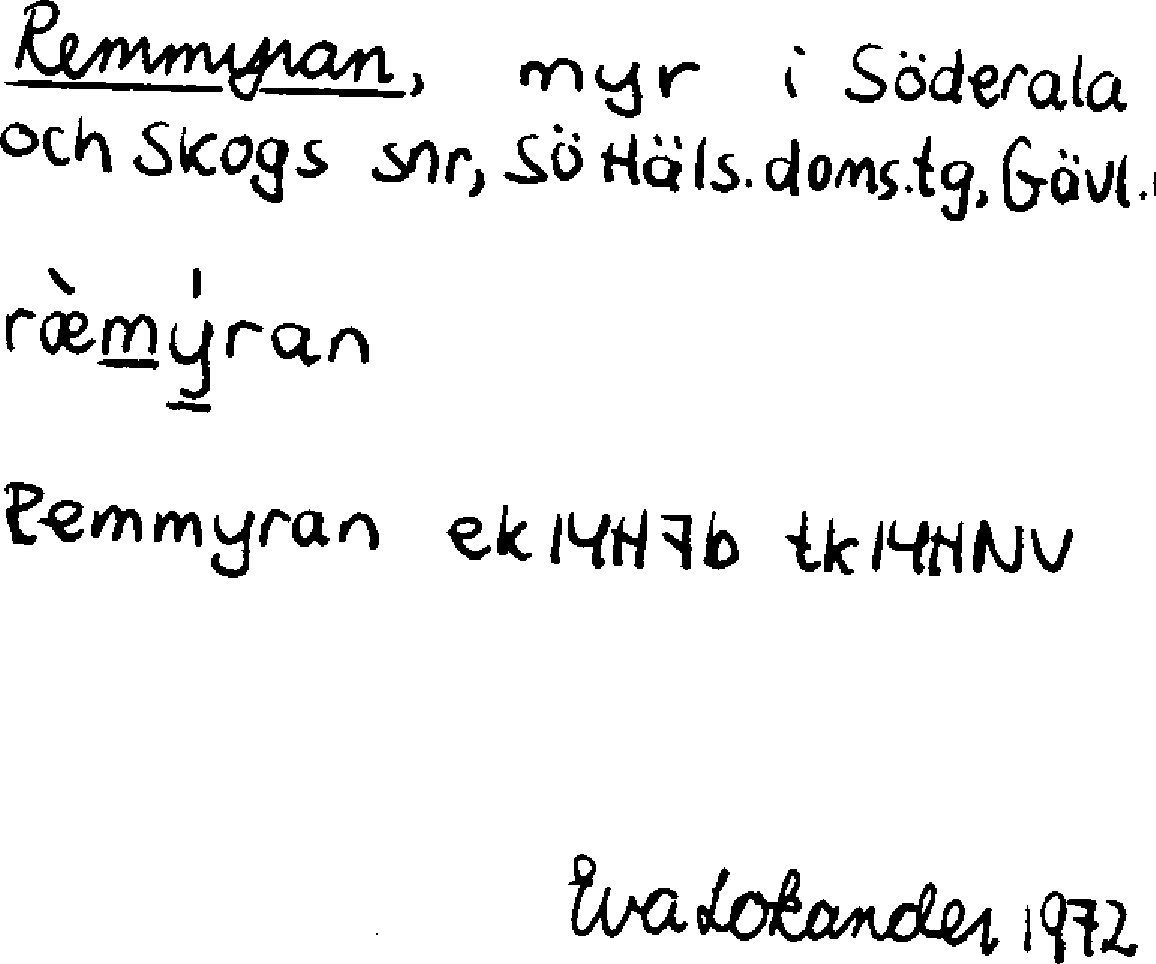 Remmyran, myr i Söderala
och Skogs snr, Sö Häls. doms.tg, Gävl.
ræ̀mýran
Remmyran ek 14H7b tk 14HNV
Eva Lokander 1972